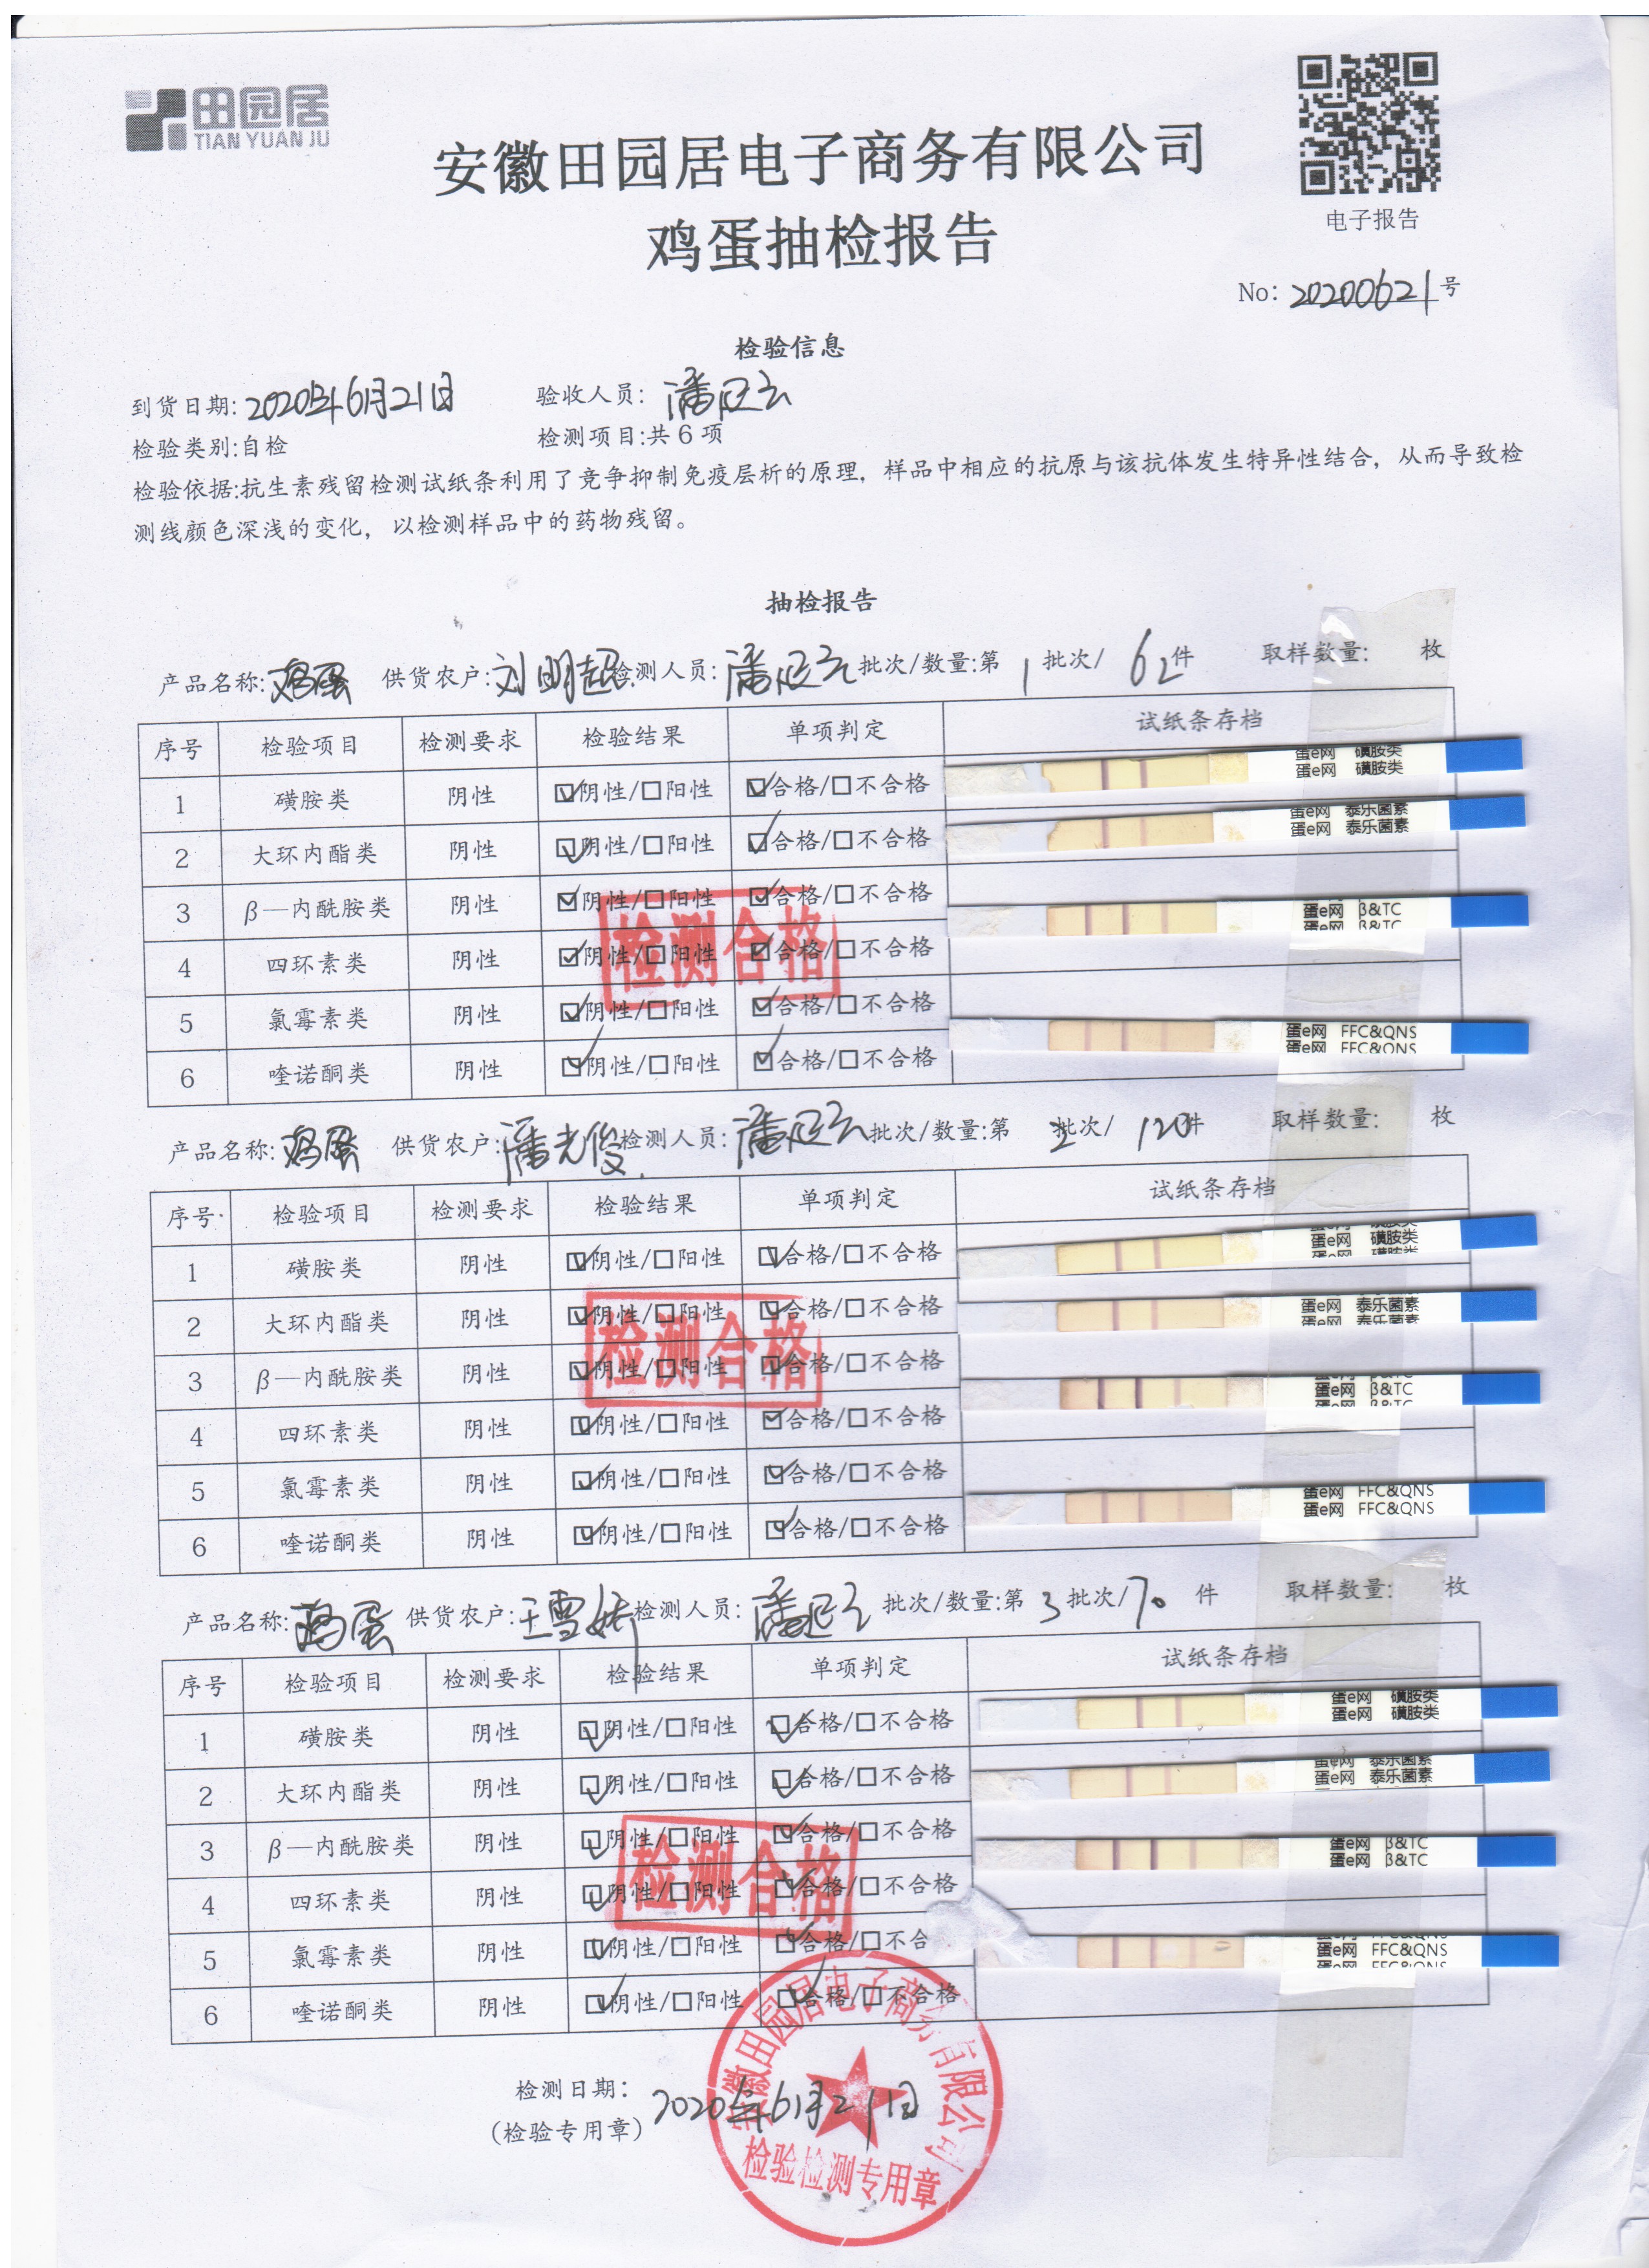 田园居
TIAN YUAN JU
安徽田园居电子商务有限公司
鸡蛋抽检报告
电子报告
No: 20200621号
检验信息
到货日期: 2020年6月21日 验收人员: 潘
检验类别:自检 检测项目:共6项
检验依据:抗生素残留检测试纸条利用了竞争抑制免疫层析的原理，样品中相应的抗原与该抗体发生特异性结合，从而导致检
测线颜色深浅的变化，以检测样品中的药物残留。
抽检报告
产品名称:鸡蛋 供货农户:刘明超 检测人员:潘 批次/数量:第1批次/62件 取样数量: 枚
序号 检验项目 检测要求 检验结果 单项判定 试纸条存档
1 磺胺类 阴性 ☑阴性/□阳性 ☑合格/□不合格 蛋e网 磺胺类
蛋e网 磺胺类
2 大环内酯类 阴性 ☑阴性/□阳性 ☑合格/□不合格 蛋e网 泰乐菌素
蛋e网 泰乐菌素
3 β—内酰胺类 阴性 ☑阴性/□阳性 ☑合格/□不合格 蛋e网 β&TC
蛋e网 β&TC
4 四环素类 阴性 ☑阴性/□阳性 ☑合格/□不合格
检测合格
5 氯霉素类 阴性 ☑阴性/□阳性 ☑合格/□不合格
6 喹诺酮类 阴性 ☑阴性/□阳性 ☑合格/□不合格 蛋e网 FFC&QNS
蛋e网 FFC&QNS
产品名称:鸡蛋 供货农户:潘光俊 检测人员:潘 批次/数量:第2批次/120件 取样数量: 枚
序号 检验项目 检测要求 检验结果 单项判定 试纸条存档
1 磺胺类 阴性 ☑阴性/□阳性 ☑合格/□不合格 蛋e网 磺胺类
蛋e网 磺胺类
2 大环内酯类 阴性 ☑阴性/□阳性 ☑合格/□不合格 蛋e网 泰乐菌素
蛋e网 泰乐菌素
检测合格
3 β—内酰胺类 阴性 ☑阴性/□阳性 ☑合格/□不合格
4 四环素类 阴性 ☑阴性/□阳性 ☑合格/□不合格 蛋e网 β&TC
蛋e网 β&TC
5 氯霉素类 阴性 ☑阴性/□阳性 ☑合格/□不合格
6 喹诺酮类 阴性 ☑阴性/□阳性 ☑合格/□不合格 蛋e网 FFC&QNS
蛋e网 FFC&QNS
产品名称:鸡蛋 供货农户:王雪娇 检测人员:潘 批次/数量:第3批次/70件 取样数量: 枚
序号 检验项目 检测要求 检验结果 单项判定 试纸条存档
1 磺胺类 阴性 ☑阴性/□阳性 ☑合格/□不合格 蛋e网 磺胺类
蛋e网 磺胺类
2 大环内酯类 阴性 ☑阴性/□阳性 ☑合格/□不合格 蛋e网 泰乐菌素
蛋e网 泰乐菌素
3 β—内酰胺类 阴性 ☑阴性/□阳性 ☑合格/□不合格 蛋e网 β&TC
蛋e网 β&TC
检测合格
4 四环素类 阴性 ☑阴性/□阳性 ☑合格/□不合格
5 氯霉素类 阴性 ☑阴性/□阳性 ☑合格/□不合 蛋e网 FFC&QNS
蛋e网 FFC&QNS
6 喹诺酮类 阴性 ☑阴性/□阳性 ☑合格/□不合格
检测日期: 2020年6月21日
(检验专用章)
安徽田园居电子商务有限公司
检验检测专用章